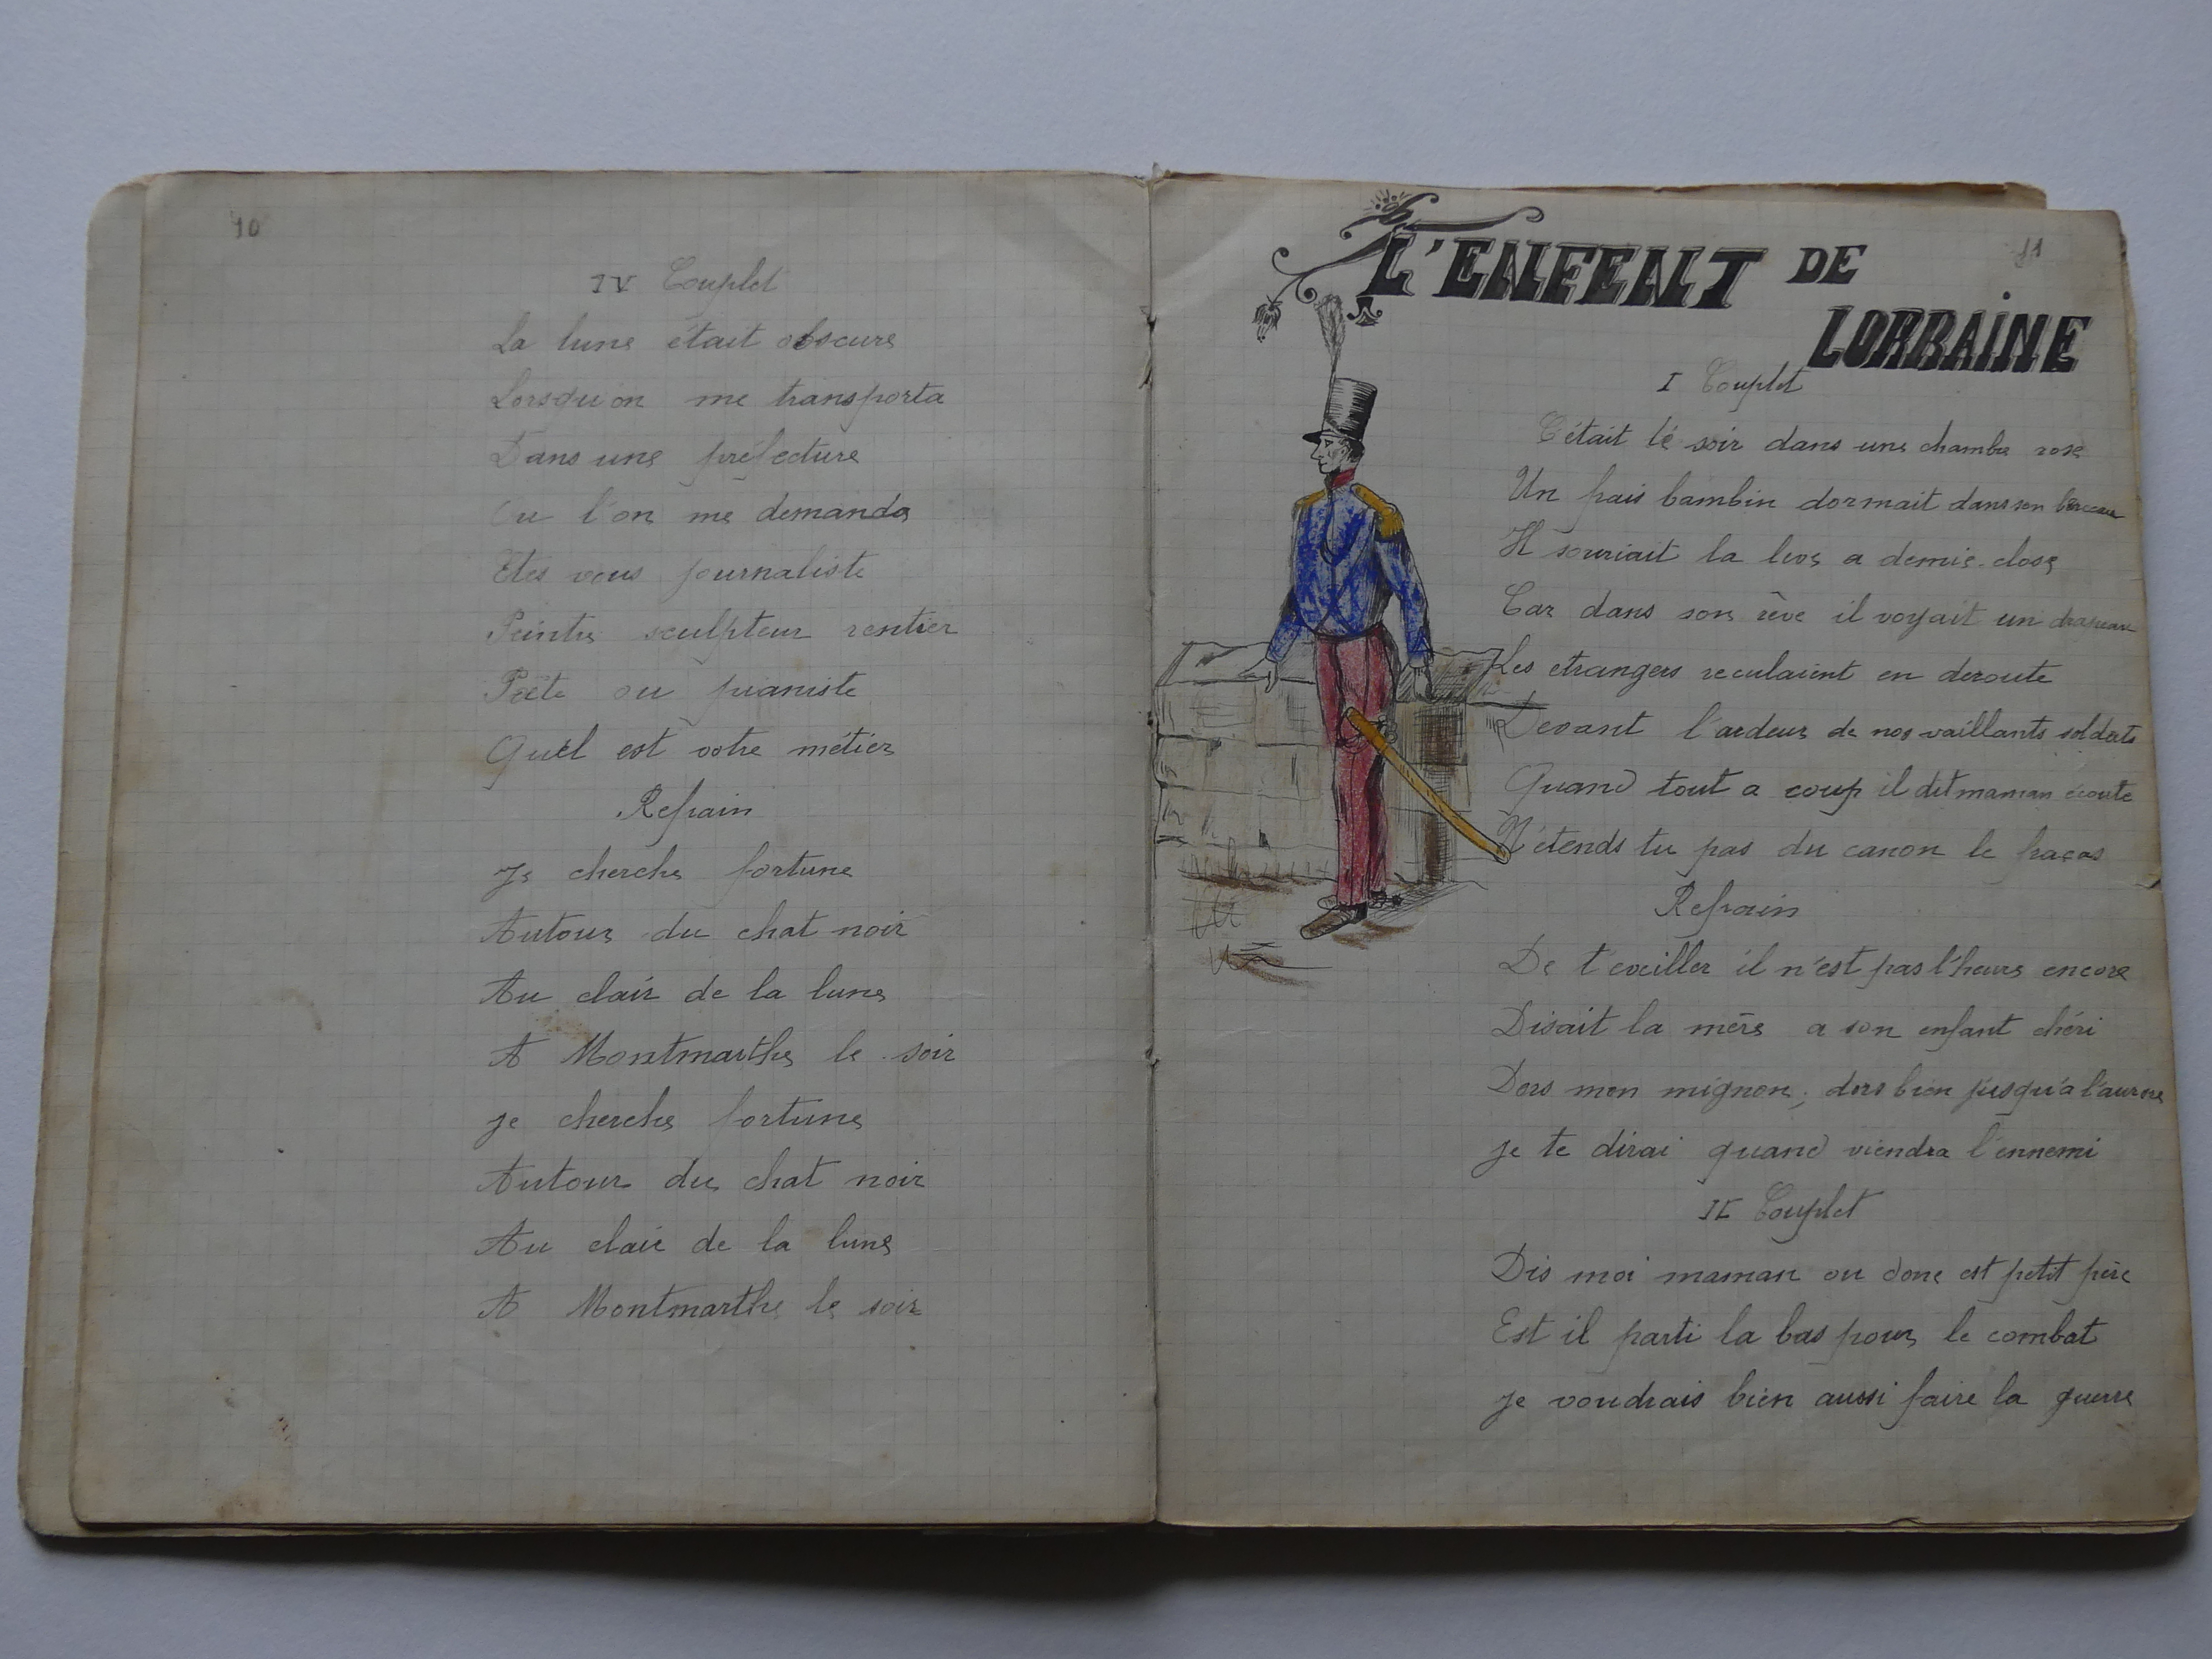 10
IV Couplet
La lune était obscure
Lorsqu'on me transporta
Dans une préfecture
Ou l'on me demanda
Etes vous journaliste
Peintre sculpteur rentier
Poëte ou pianiste
Quel est votre métier
Refrain
Je cherche fortune
Autour du chat noir
Au clair de la lune
A Montmarthe le soir
je cherche fortune
Autour du chat noir
Au clair de la lune
A Montmarthe le soir
11
L'ENFENT DE
LORRAINE
I Couplet
C'était lé soir dans une chambre rose
Un frais bambin dormait dans son berceau
Il souriait la levre a demie-close
Car dans son rêve il voyait un drapeau
Les etrangers reculaient en deroute
Devant l'ardeur de nos vaillants soldats
Quand tout a coup il dit maman écoute
N'étends tu pas du canon le fracas
Refrain
De t'eveiller il n'est pas l'heure encore
Disait la mère a son enfant chéri
Dors mon mignon, dors bien jusqu'a l'aurore
je te dirai quand viendra l'ennemi
II Couplet
Dis moi maman ou donc est petit père
Est il parti la bas pour le combat
je voudrais bien aussi faire la guerre